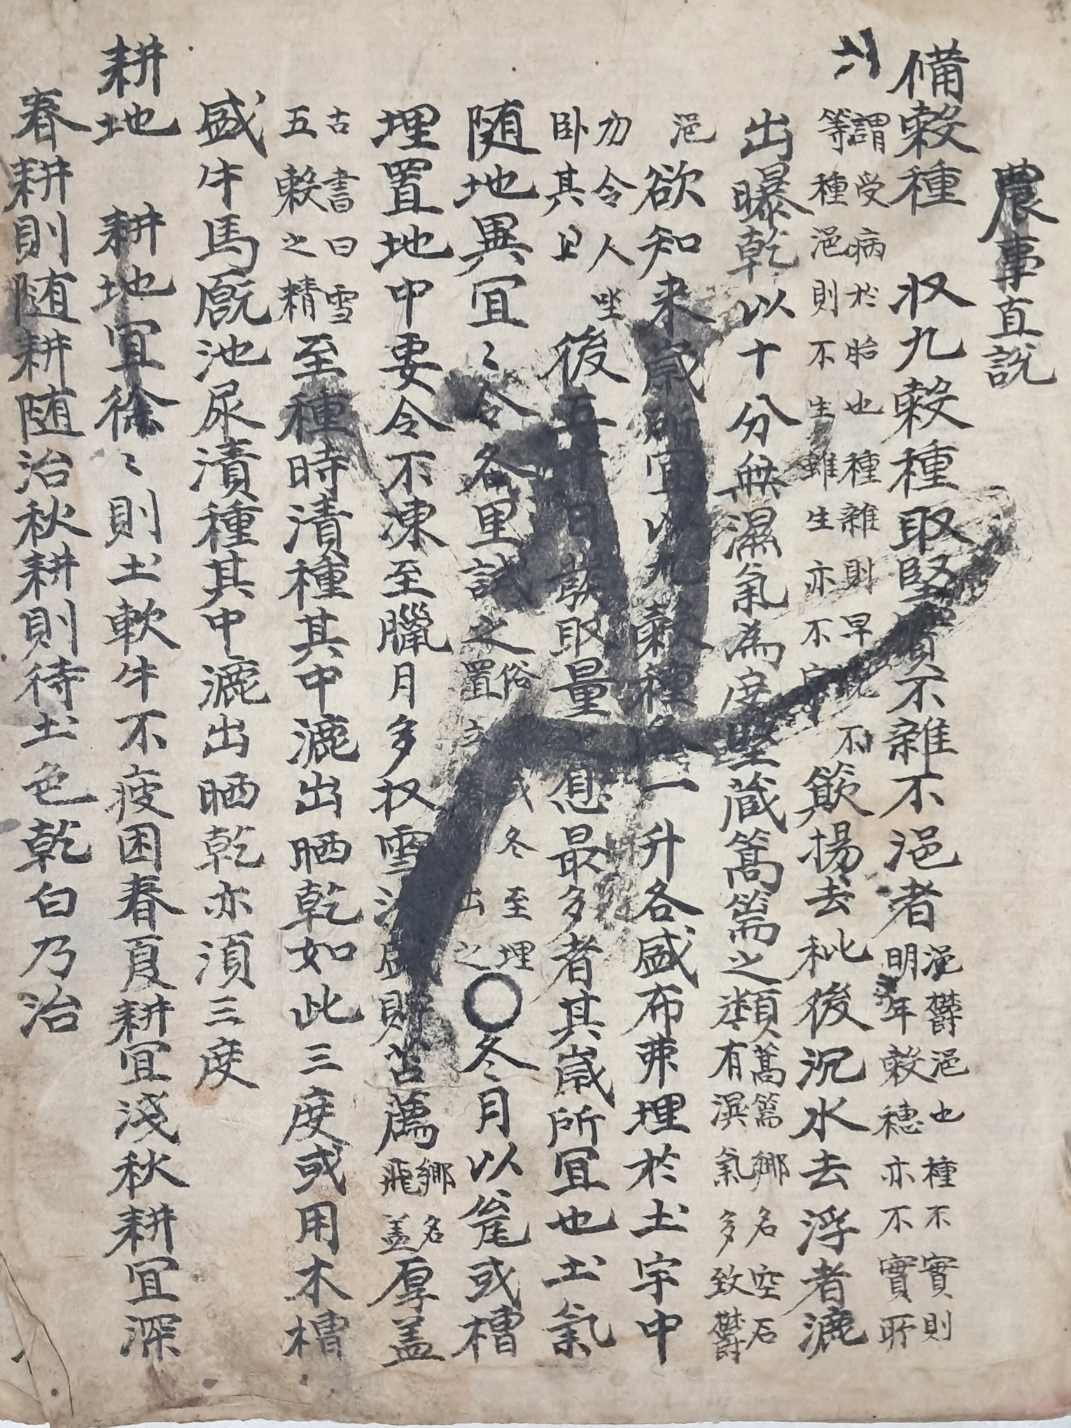 農事直說
備穀種 收九穀種取堅實不雜不浥者浥鬱浥也種不實則明年穀穗亦不實所
謂受病於胎也種雜則早晚不等種浥則不生雖生亦不實簸揚去秕後沉水去浮者漉
出曝乾以十分無濕氣為度堅藏篙篅之類篙篅鄉名空石有濕氣多致鬱
浥欲知来歲所宜以九穀種各一升各盛布帒埋於土宇中
勿令人坐卧其上後五十日發取量之息最多者其歲所宜也土氣
随地異宜〻令各里試之俗冬至埋置出之○冬月以瓮或槽
埋置地中要令不凍至臘月多収雪汁盛貯苫薦鄉名飛盖厚盖
古書曰雪五穀之精至種時漬種其中漉出晒乾如此三度或用木槽
盛牛馬廐池尿漬種其中漉出晒乾亦湏三度
耕地 耕地宜徐〻則土軟牛不疲困春夏耕宜淺秋耕宜深
春耕則随耕随治秋耕則待土色乾白乃治